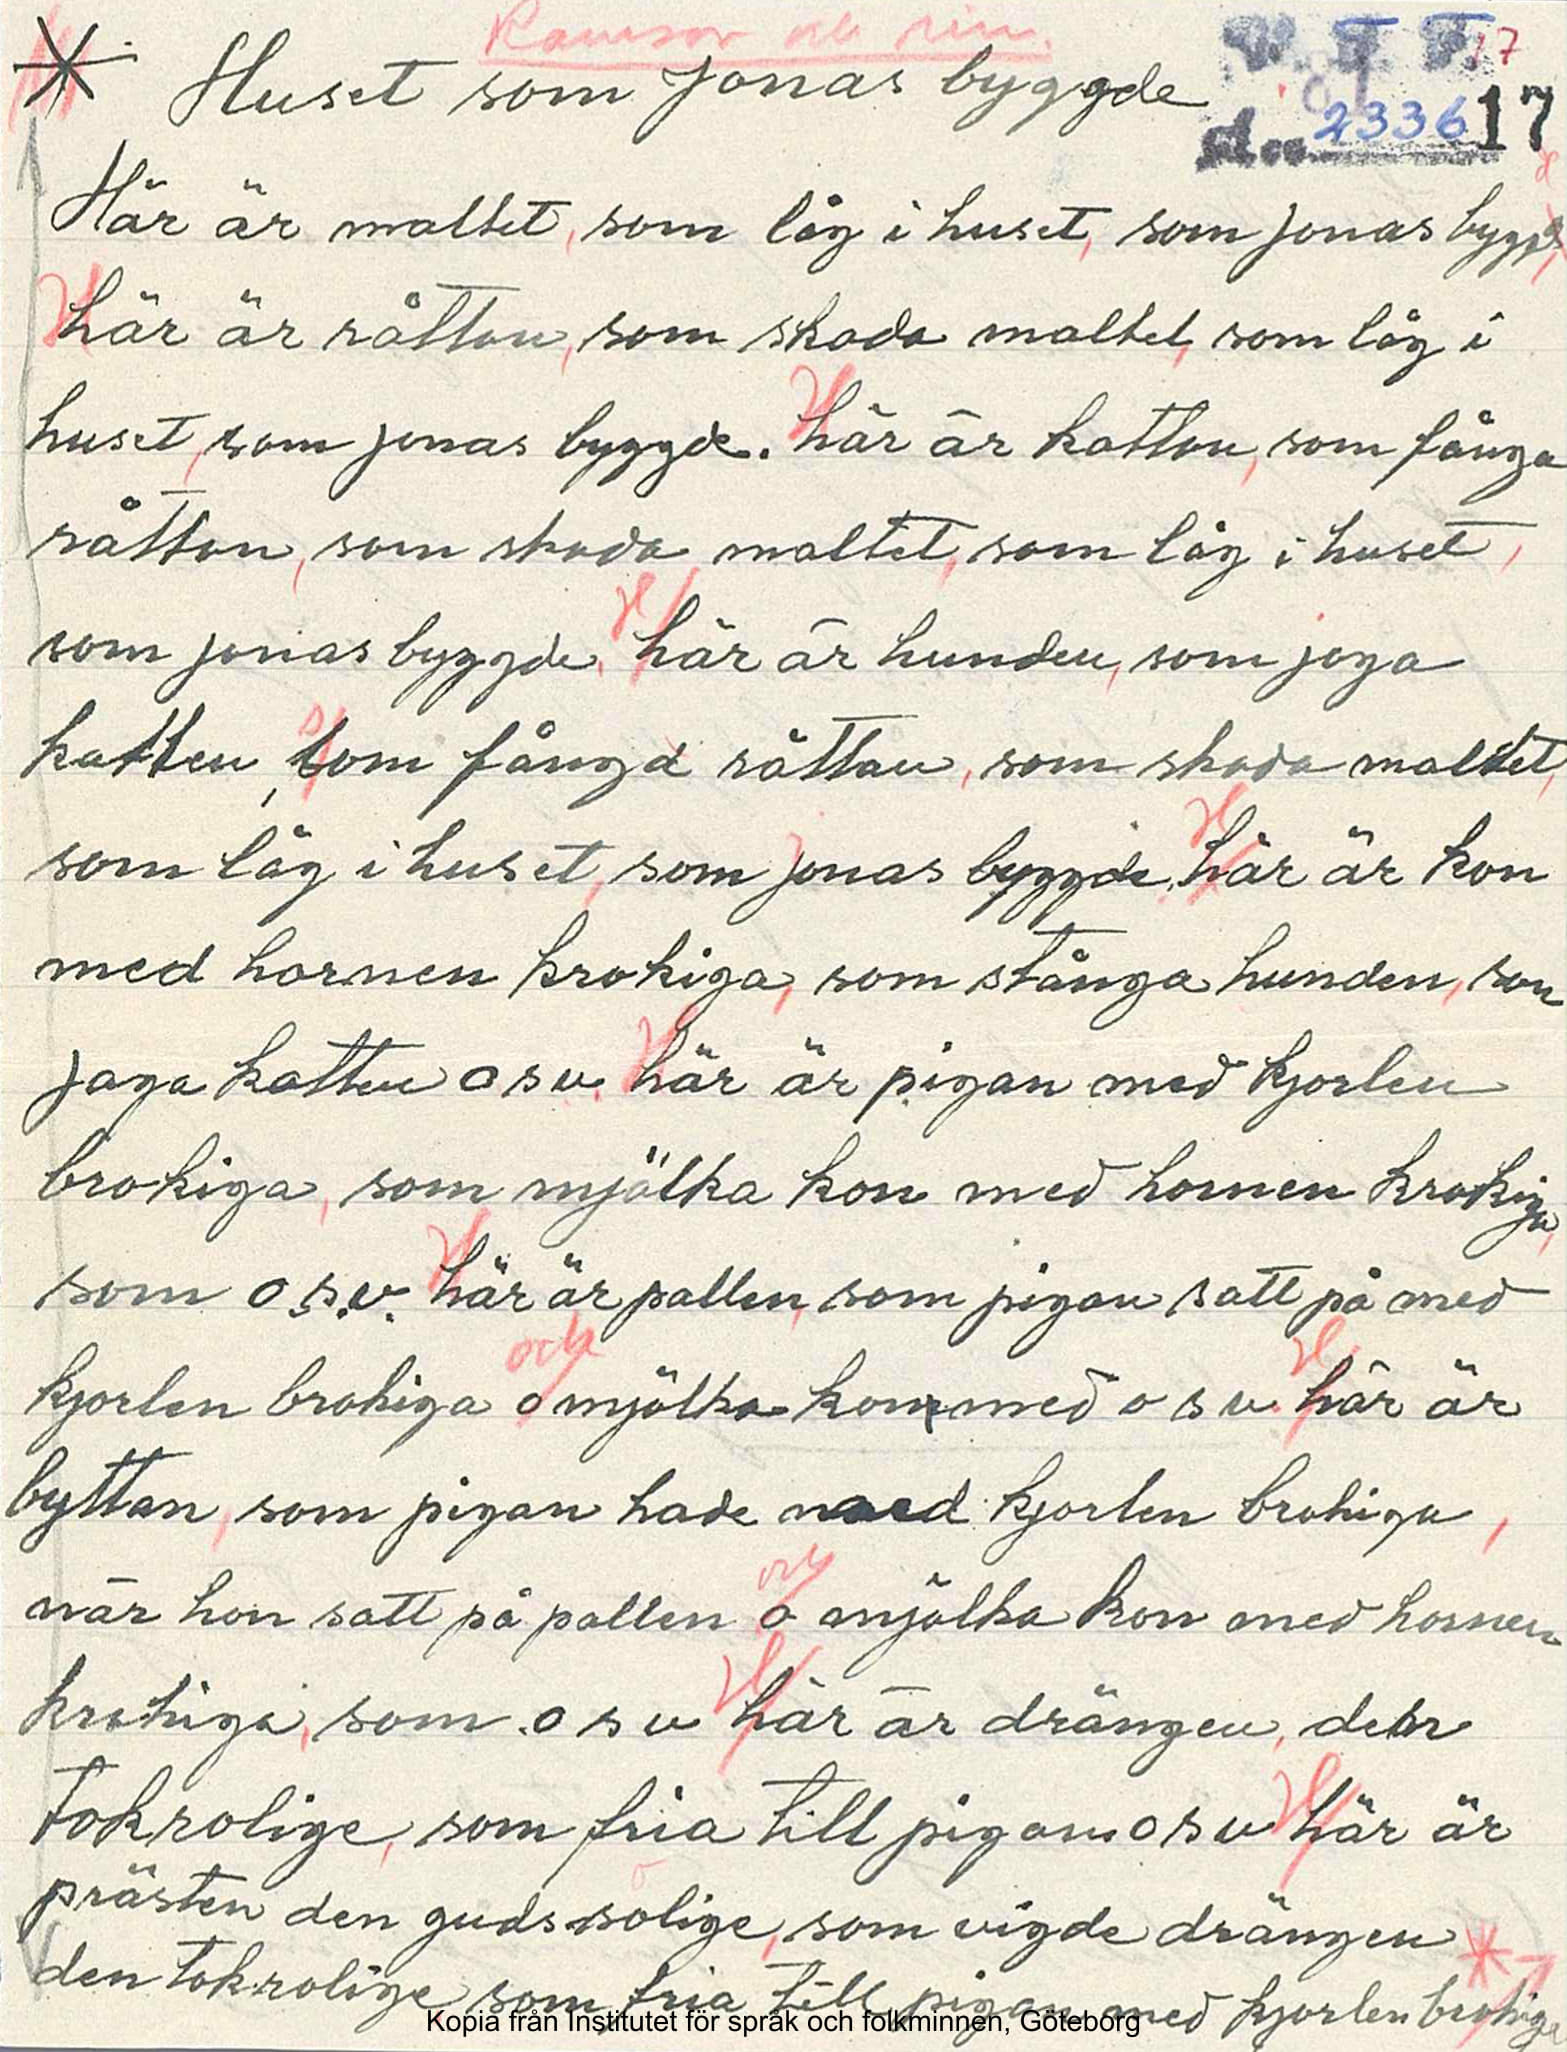 Ramsor och rim.
V. F. F. 17
Huset som Jonas byggde
2336 17
Här är maltet, som låg i huset, som Jonas byggde,
här är råttan, som skada maltet, som låg i
huset, som Jonas byggde. här är kattan, som fånga
råttan, som skada maltet, som låg i huset,
som Jonas byggde, här är hunden, som jaga
katten, som fånga råttan, som skada maltet,
som låg i huset, som Jonas byggde, här är kon
med hornen krokiga, som stånga hunden, som
jaga katten o s v. här är pigan med kjorlen
brokiga, som mjölka kon med hornen krokiga,
som o.s.v. här är pallen, som pigan satt på med
och
kjorlen brokiga o mjölka kon med o s v. här är
byttan, som pigan hade med kjorlen brokiga,
och
när hon satt på pallen o mjölka kon med hornen
krokiga, som o s v här är drängen, den
tokrolige, som fria till pigan o s v här är
prästen den gudssolige, som vigde drängen
den tokrolige som fria till pigan med kjorlen brokiga
Kopia från Institutet för språk och folkminnen, Göteborg